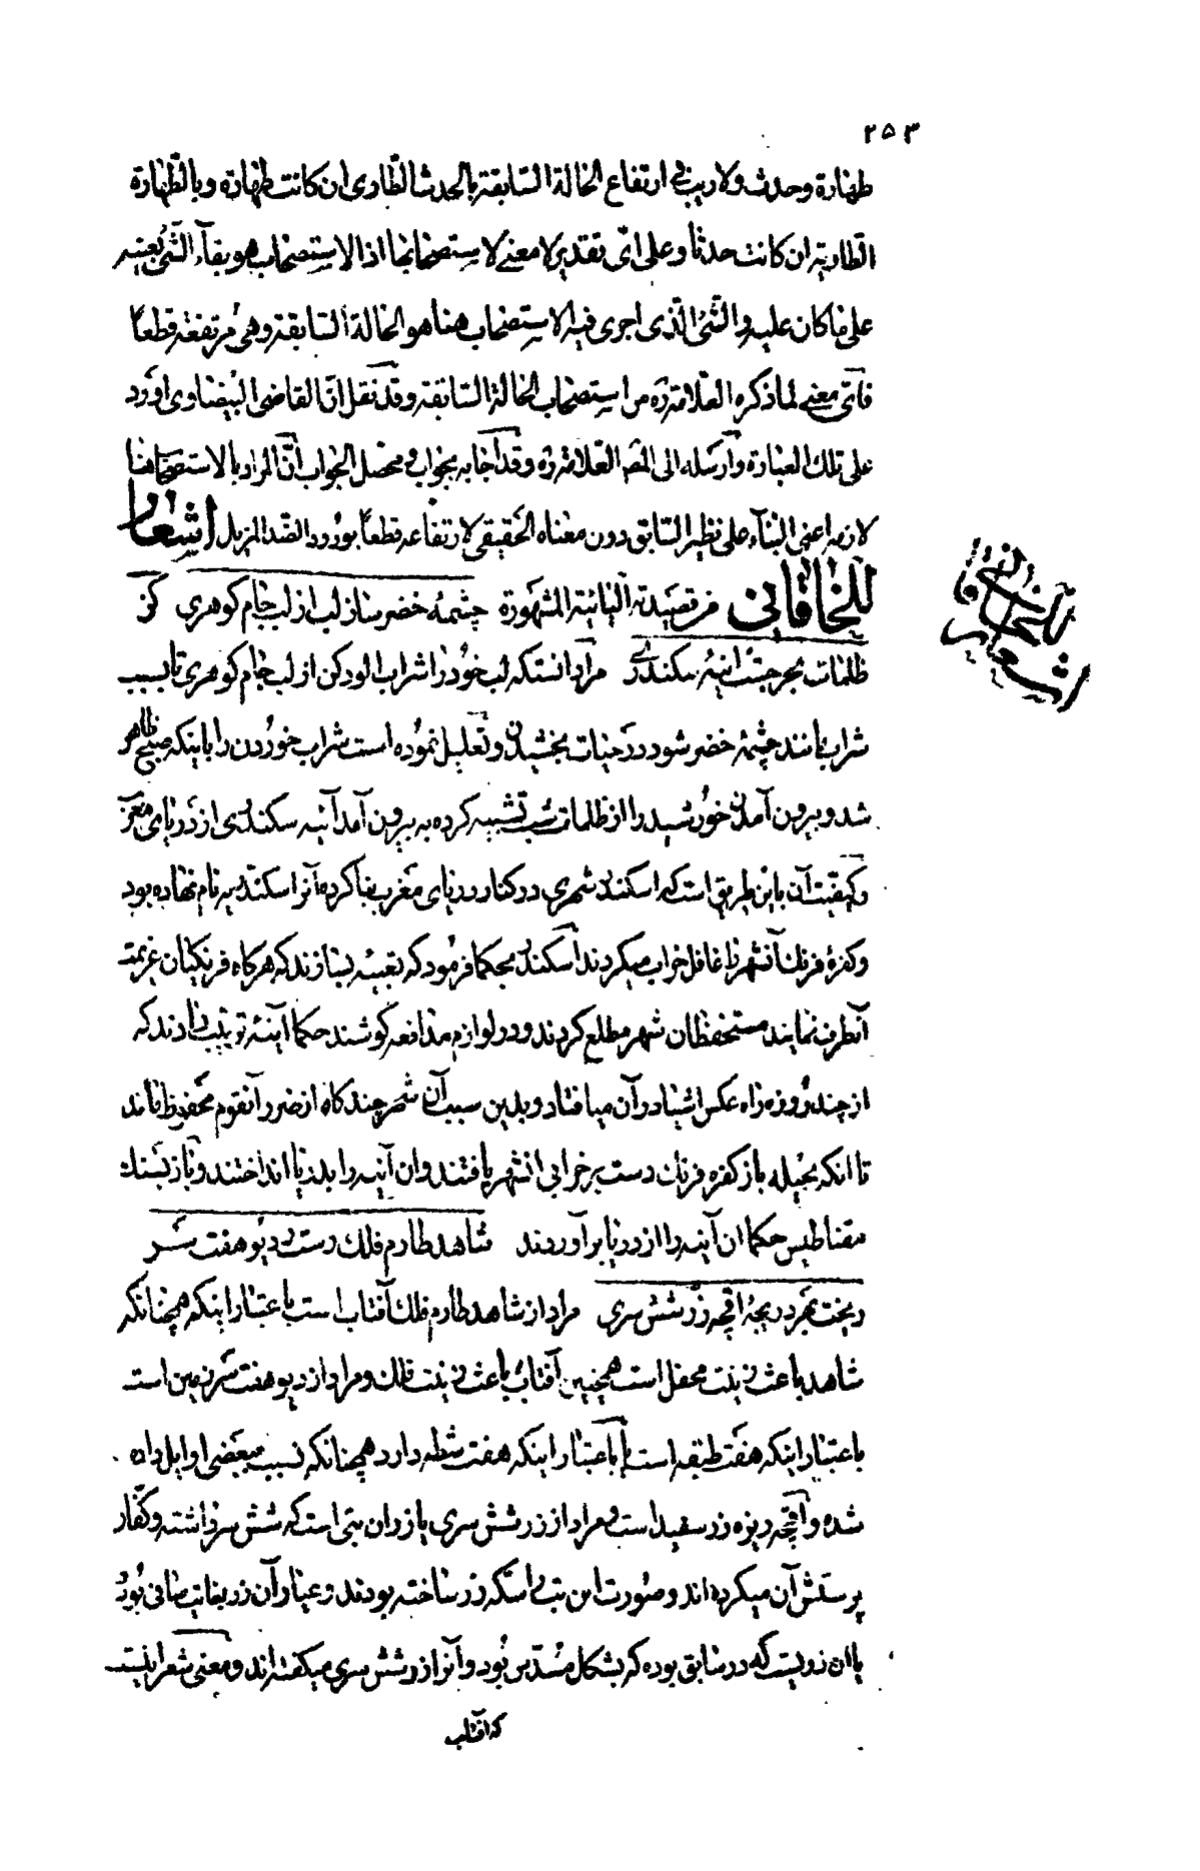 ٢٥٣
طهارة وحدث ولا ريب في ارتفاع الحالة السابقة بالحدث الطاري ان كانت طهارة وبالطهارة
الطارية ان كانت حدثا وعلى اىّ تقدير لا معنى لاستصحابها اذ الاستصحاب هو بقاء الشئ بعينه
على ما كان عليه والشئ الّذى اجرى فيه الاستصحاب هنا هو الحالة السابقة وهى مرتفعة قطعًا
فاىّ معنى لما ذكره العلّامة ره من استصحاب الحالة السابقة وقد نقل انّ القاضى البيضاوى اورد
على تلك العبارة وارسله الى العلامة ره وقد اجابه بجواب ومحصل الجواب انّ المراد بالاستصحاب هنا
لازمه اعنى البناء على نظير السابق دون معناه الحقيقى لارتفاعه قطعًا بورود الضد المزيل اشعار
للخاقانى من قصيدته اليائية المشهورة چشمهٔ خضر ساز لب از لب جام كوهرى كز
ظلمات بحر جست اينهٔ سكندرى مراد انستكه لب خود را شراب الود كن از لب جام كوهرى تا بسبب
شراب مانند چشمهٔ خضر شود در حيات بخشيدن وتعليل نموده است شراب خوردن را باينكه صبح ظاهر
شد وبيرون آمدن خورشيد را از ظلمات شب تشبيه كرده به بيرون آمدن آينه سكندرى از درياى مغرب
وكيفيت آن باين طريق است كه اسكندر شهرى در كنار درياى مغرب بنا كرده آنرا اسكندريه نام نهاده بود
وكفرهٔ فرنك آنشهر را غافل خراب ميكردند اسكندر بحكما فرمود كه تعبيه بسازند كه هركاه فرنكيان عزيمت
آنطرف نمايند مستحفظان شهر مطلع كردند ودر لوازم مدافعه كوشند حكما آينهٔ ترتيب دادند كه
از چند روزه راه عكس اشيا در آن ميافتاد وبدين سبب آن شهر چند كاه از ضرر آنقوم محفوظ ماند
تا انكه بحيله باز كفره فرنك دست بر خرابى انشهر يافتند وان آينه را بدريا انداختند وباز بسنك
مقناطيس حكما ان آينه را از دريا برآوردند شاهد طارم فلك رست ز ديو هفت سر
ريخت بهر دريچهٔ اقچه زر شش سرى مراد از شاهد طارم فلك آفتاب است باعتبار اينكه همچنانكه
شاهد باعث زينت محفل است همچنين آفتاب باعث زينت فلك ومراد از ديو هفت سر زمين است
باعتبار اينكه هفت طبقه است يا باعتبار اينكه هفت دارد همچنانكه نسبت ببعضى اوايل داده
شده واقچه ريزه زر سفيد است ومراد از زر شش سرى يا زر ان بتى است كه شش سر داشته وكفّار
پرستش آن ميكرده اند وصورت اين بت را از زر ساخته بودند وعيار آن زر بغايت صافى بود
يا ان زريست كه در سابق بوده كه بشكل مسدّس بود وآنرا زر شش سرى ميكفته اند ومعنى شعر اينست
كه افتاب
اشعار للخاقانى